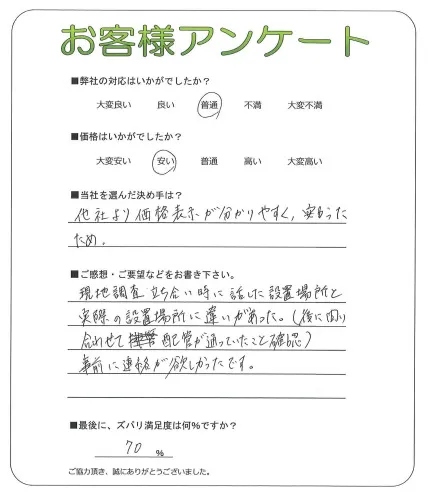 お客様アンケート
■弊社の対応はいかがでしたか？
大変良い 良い 普通 不満 大変不満
■価格はいかがでしたか？
大変安い 安い 普通 高い 大変高い
■当社を選んだ決め手は？
他社より価格表示が分かりやすく、安かった
ため。
■ご感想・ご要望などをお書き下さい。
現地調査立ち合い時に話した設置場所と
実際の設置場所に違いがあった。（後に問い
合わせて配管が通っていたこと確認）
事前に連絡が欲しかったです。
■最後に、ズバリ満足度は何％ですか？
70 ％
ご協力頂き、誠にありがとうございました。